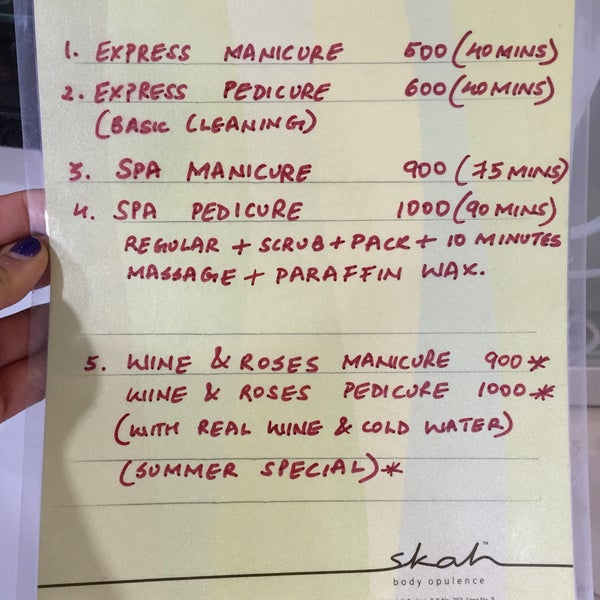 1. EXPRESS MANICURE 500 (40 MINS)
2. EXPRESS PEDICURE 600 (40 MINS)
(BASIC CLEANING)
3. SPA MANICURE 900 (75 MINS)
4. SPA PEDICURE 1000 (90 MINS)
REGULAR + SCRUB + PACK + 10 MINUTES
MASSAGE + PARAFFIN WAX.
5. WINE & ROSES MANICURE 900 *
WINE & ROSES PEDICURE 1000 *
(WITH REAL WINE & COLD WATER)
(SUMMER SPECIAL) *
skah™
body opulence